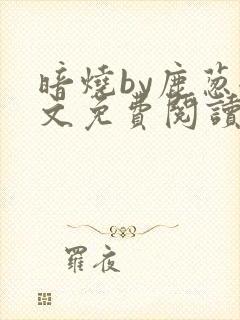 暗燒by鹿蔥
文免費閱讀
羅夜